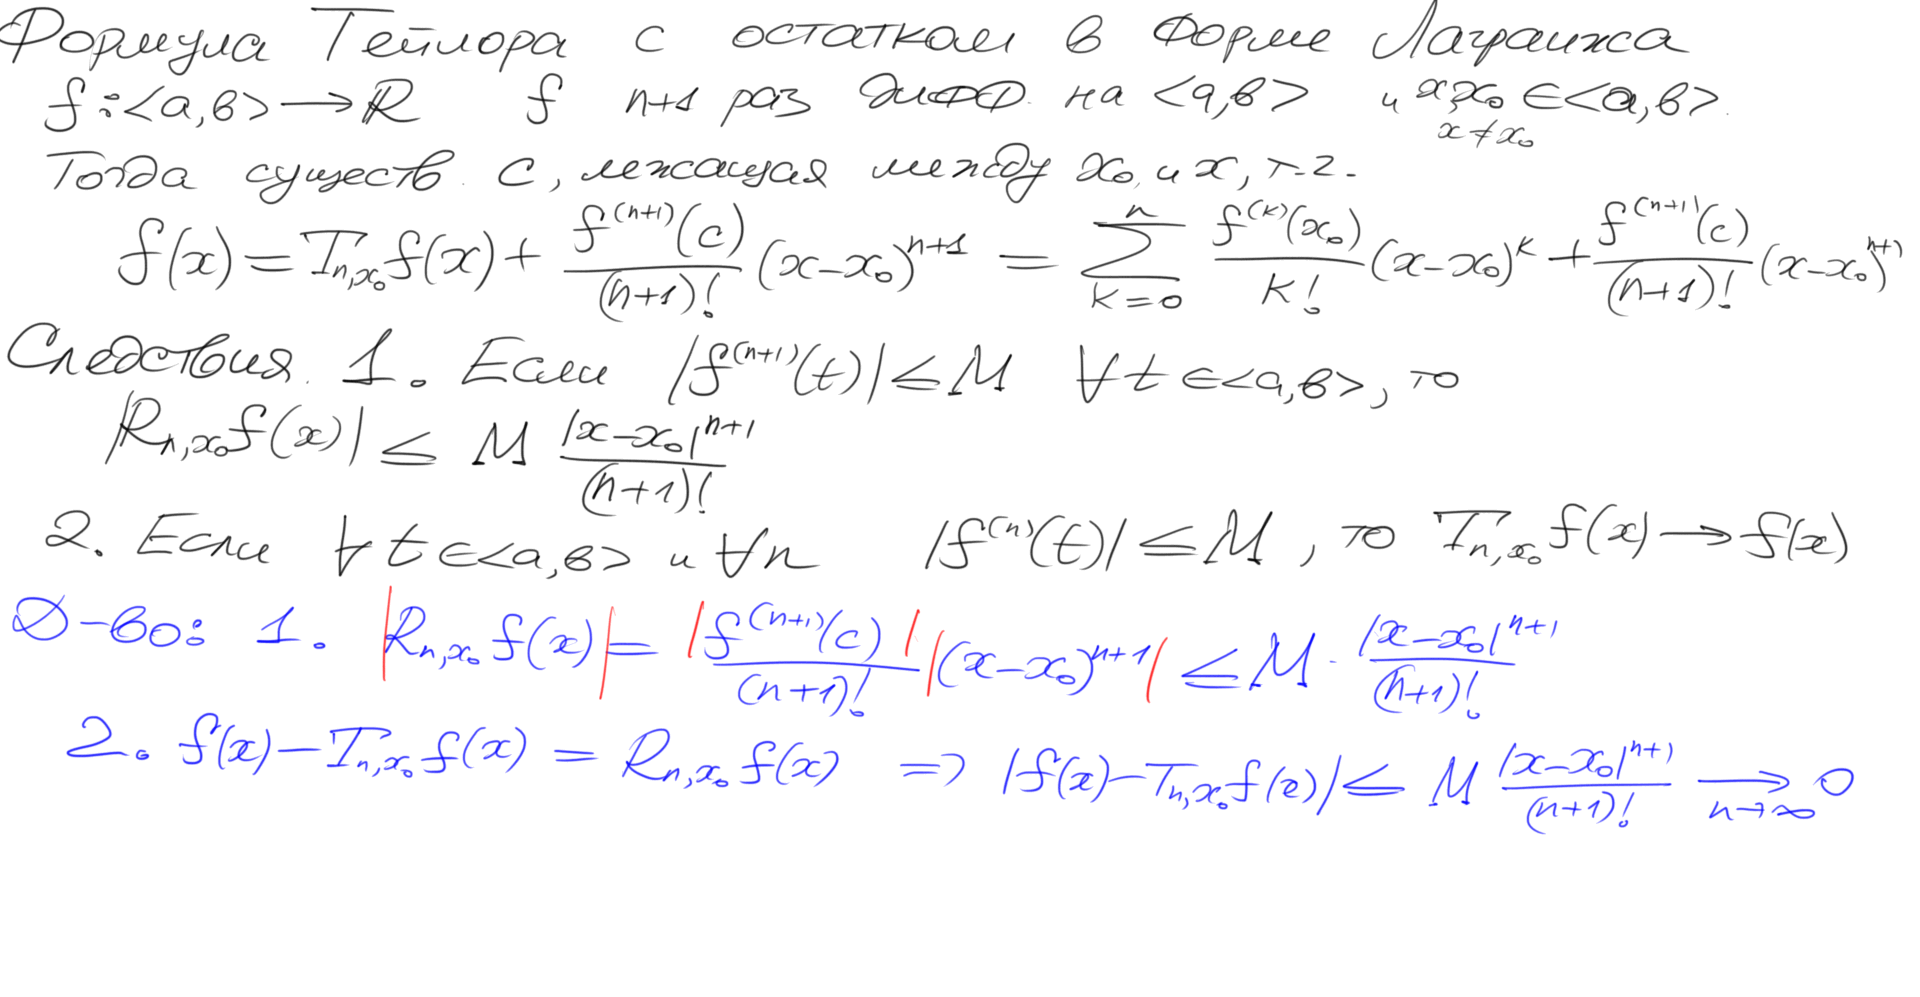 Формула Тейлора с остатком в форме Лагранжа
f:<a,b>→ℝ f n+1 раз дифф. на <a,b> и x,x₀∈<a,b>.
x≠x₀
Тогда существ. c, лежащая между x₀ и x, т.ч.
f(x)=T_{n,x₀}f(x)+\frac{f^{(n+1)}(c)}{(n+1)!}(x-x₀)^{n+1} = \sum_{k=0}^{n}\frac{f^{(k)}(x₀)}{k!}(x-x₀)^k+\frac{f^{(n+1)}(c)}{(n+1)!}(x-x₀)^{n+1}
Следствия. 1. Если |f^{(n+1)}(t)|≤M ∀t∈<a,b>, то
|R_{n,x₀}f(x)| ≤ M \frac{|x-x₀|^{n+1}}{(n+1)!}
2. Если ∀t∈<a,b> и ∀n |f^{(n)}(t)|≤M, то T_{n,x₀}f(x)→f(x)
Д-во: 1. |R_{n,x₀}f(x)|=|\frac{f^{(n+1)}(c)}{(n+1)!}||(x-x₀)^{n+1}| ≤M·\frac{|x-x₀|^{n+1}}{(n+1)!}
2. f(x)-T_{n,x₀}f(x) = R_{n,x₀}f(x) ⇒ |f(x)-T_{n,x₀}f(x)|≤ M\frac{|x-x₀|^{n+1}}{(n+1)!} \xrightarrow[n→∞]{} 0